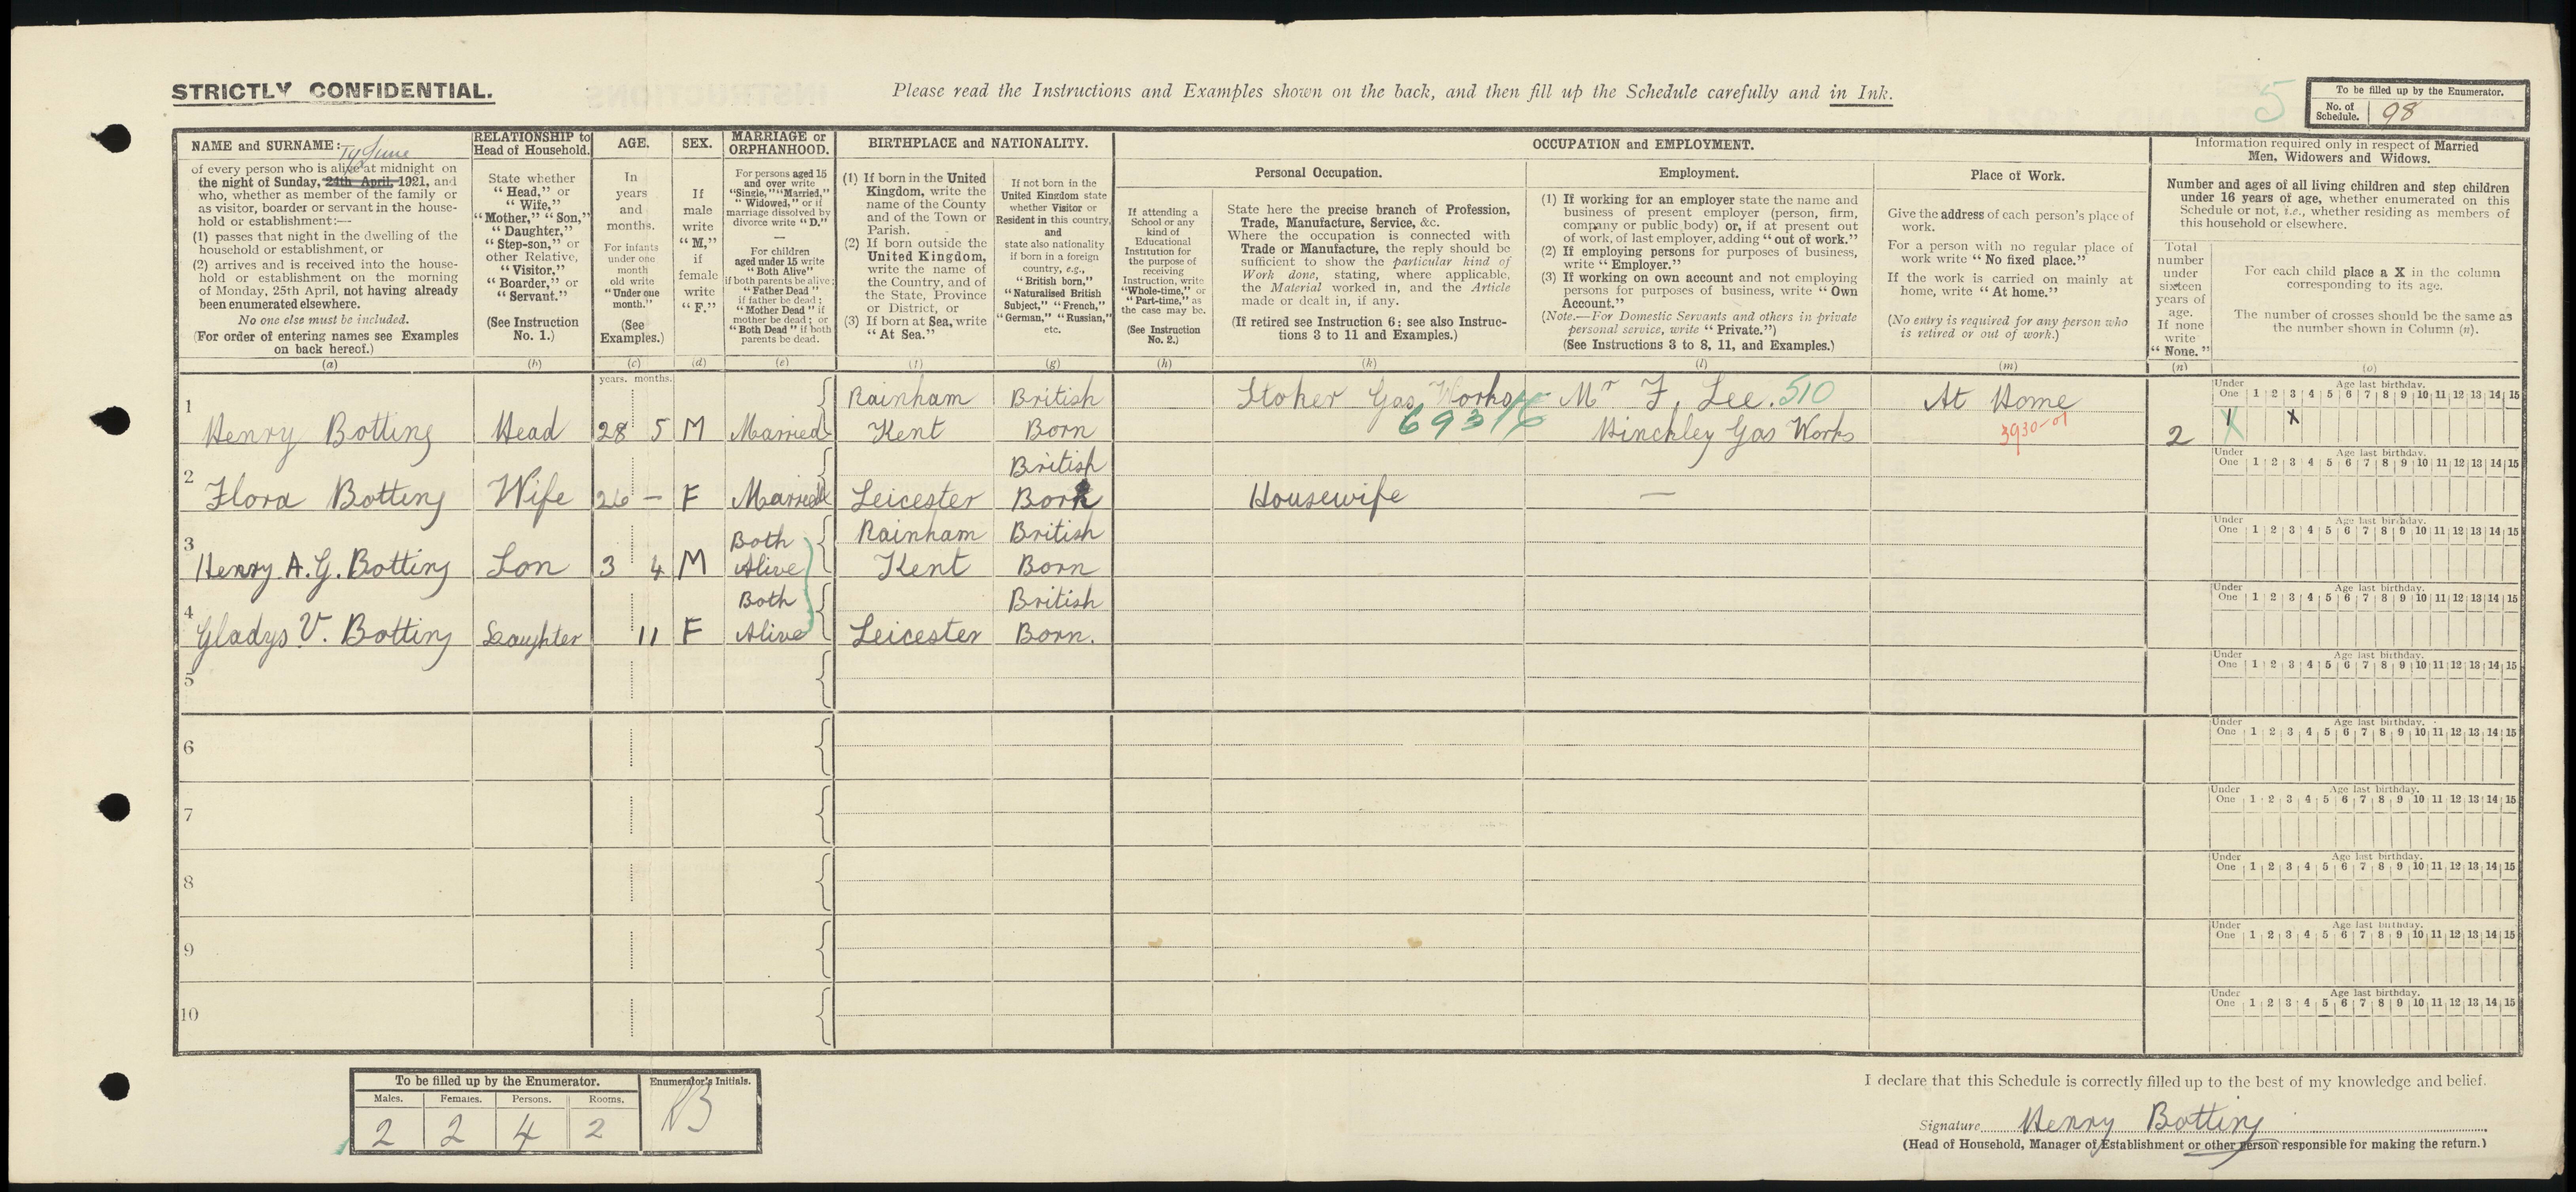 STRICTLY CONFIDENTIAL.
Please read the Instructions and Examples shown on the back, and then fill up the Schedule carefully and in Ink.
5
To be filled up by the Enumerator.
No. of Schedule. 98
NAME and SURNAME:
19 June
of every person who is alive at midnight on
the night of Sunday, 24th April, 1921, and
who, whether as member of the family or
as visitor, boarder or servant in the house-
hold or establishment:—
(1) passes that night in the dwelling of the
household or establishment, or
(2) arrives and is received into the house-
hold or establishment on the morning
of Monday, 25th April, not having already
been enumerated elsewhere.
No one else must be included.
(For order of entering names see Examples
on back hereof.)
(a)
RELATIONSHIP to
Head of Household.
State whether
“Head,” or
“Wife,”
“Mother,” “Son,”
“Daughter,”
“Step-son,” or
other Relative,
“Visitor,”
“Boarder,” or
“Servant.”
(See Instruction
No. 1.)
(b)
AGE.
In
years
and
months.
For infants
under one
month
old write
“Under one
month.”
(See
Examples.)
(c)
SEX.
If
male
write
“M,”
if
female
write
“F.”
(d)
MARRIAGE or
ORPHANHOOD.
For persons aged 15
and over write
“Single,” “Married,”
“Widowed,” or if
marriage dissolved by
divorce write “D.”
—
For children
aged under 15 write
“Both Alive”
if both parents be alive;
“Father Dead”
if father be dead;
“Mother Dead” if
mother be dead; or
“Both Dead” if both
parents be dead.
(e)
BIRTHPLACE and NATIONALITY.
(1) If born in the United
Kingdom, write the
name of the County
and of the Town or
Parish.
(2) If born outside the
United Kingdom,
write the name of
the Country, and of
the State, Province
or District, or
(3) If born at Sea, write
“At Sea.”
(f)
If not born in the
United Kingdom state
whether Visitor or
Resident in this country,
and
state also nationality
if born in a foreign
country, e.g.,
“British born,”
“Naturalised British
Subject,” “French,”
“German,” “Russian,”
etc.
(g)
OCCUPATION and EMPLOYMENT.
If attending a
School or any
kind of
Educational
Institution for
the purpose of
receiving
Instruction, write
“Whole-time,” or
“Part-time,” as
the case may be.
(See Instruction
No. 2.)
(h)
Personal Occupation.
State here the precise branch of Profession,
Trade, Manufacture, Service, &c.
Where the occupation is connected with
Trade or Manufacture, the reply should be
sufficient to show the particular kind of
Work done, stating, where applicable,
the Material worked in, and the Article
made or dealt in, if any.
(If retired see Instruction 6; see also Instruc-
tions 3 to 11 and Examples.)
(k)
Employment.
(1) If working for an employer state the name and
business of present employer (person, firm,
company or public body) or, if at present out
of work, of last employer, adding “out of work.”
(2) If employing persons for purposes of business,
write “Employer.”
(3) If working on own account and not employing
persons for purposes of business, write “Own
Account.”
(Note.—For Domestic Servants and others in private
personal service, write “Private.”)
(See Instructions 3 to 8, 11, and Examples.)
(l)
Place of Work.
Give the address of each person's place of
work.
For a person with no regular place of
work write “No fixed place.”
If the work is carried on mainly at
home, write “At home.”
(No entry is required for any person who
is retired or out of work.)
(m)
Information required only in respect of Married
Men, Widowers and Widows.
Number and ages of all living children and step children
under 16 years of age, whether enumerated on this
Schedule or not, i.e., whether residing as members of
this household or elsewhere.
Total
number
under
sixteen
years of
age.
If none
write
“None.”
(n)
For each child place a X in the column
corresponding to its age.
The number of crosses should be the same as
the number shown in Column (n).
(o)
years. months.
1 Henry Botting Head 28 5 M Married Rainham Kent British Born Stoker Gas Works 693/6 Mr F. Lee. 510 Hinchley Gas Works At Home 3930-01 2
Under One Age last birthday. 1 2 3 4 5 6 7 8 9 10 11 12 13 14 15
X X
2 Flora Botting Wife 26 — F Married Leicester British Born Housewife —
Under One Age last birthday. 1 2 3 4 5 6 7 8 9 10 11 12 13 14 15
3 Henry A. G. Botting Son 3 4 M Both Alive Rainham Kent British Born
Under One Age last birthday. 1 2 3 4 5 6 7 8 9 10 11 12 13 14 15
4 Gladys V. Botting Daughter 11 F Both Alive Leicester British Born.
Under One Age last birthday. 1 2 3 4 5 6 7 8 9 10 11 12 13 14 15
5
Under One Age last birthday. 1 2 3 4 5 6 7 8 9 10 11 12 13 14 15
6
Under One Age last birthday. 1 2 3 4 5 6 7 8 9 10 11 12 13 14 15
7
Under One Age last birthday. 1 2 3 4 5 6 7 8 9 10 11 12 13 14 15
8
Under One Age last birthday. 1 2 3 4 5 6 7 8 9 10 11 12 13 14 15
9
Under One Age last birthday. 1 2 3 4 5 6 7 8 9 10 11 12 13 14 15
10
Under One Age last birthday. 1 2 3 4 5 6 7 8 9 10 11 12 13 14 15
To be filled up by the Enumerator.
Enumerator's Initials.
Males. Females. Persons. Rooms.
2 2 4 2
RB
I declare that this Schedule is correctly filled up to the best of my knowledge and belief.
Signature Henry Botting
(Head of Household, Manager of Establishment or other person responsible for making the return.)